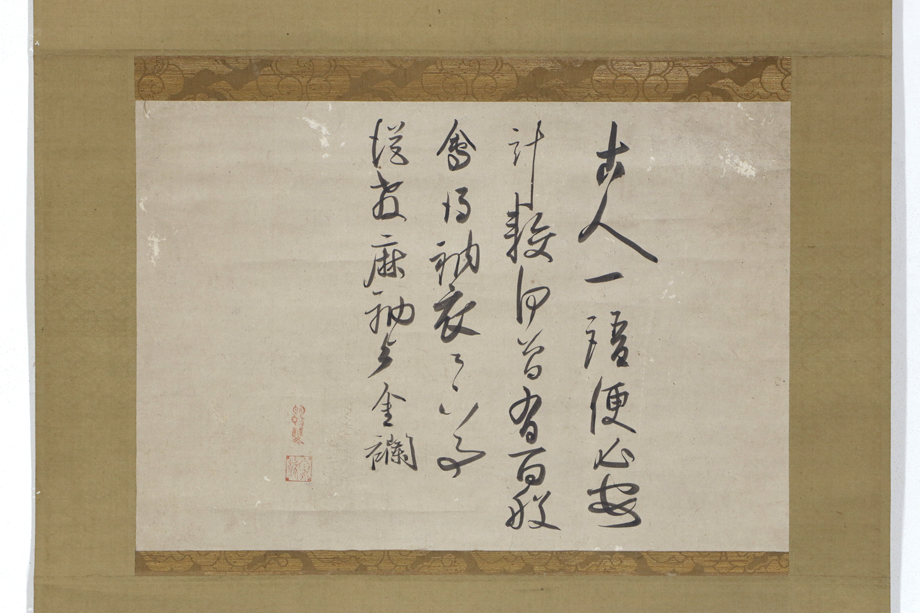 古人一語便心安
計較何曾有百般
會得衲衣々下事
従教麻衲与金襴